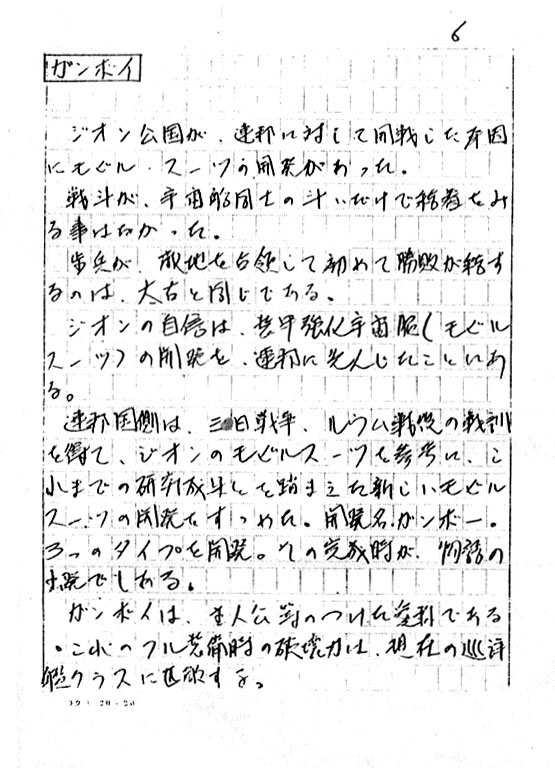 6
ガンボイ
ジオン公国が、連邦に対して開戦した原因
にモビル・スーツの開発があった。
戦斗が、宇宙船同士の斗いだけで終着をみ
る事はなかった。
歩兵が、敵地を占領して初めて勝敗が決す
るのは、太古と同じである。
ジオンの自信は、装甲強化宇宙服(モビル
スーツ)の開発を、連邦に先んじたことにあ
る。
連邦国側は、三日戦争、ルウム戦役の戦訓
を得て、ジオンのモビルスーツを参考に、こ
れまでの研究成果とを踏まえた新しいモビル
スーツの開発をすゝめた。開発名ガンボー。
3つのタイプを開発。その完成時が、物語の
出発でもある。
ガンボイは、主人公達のつけた愛称である
。これのフル装備時の破壊力は、現在の巡洋
艦クラスに匹敵する。